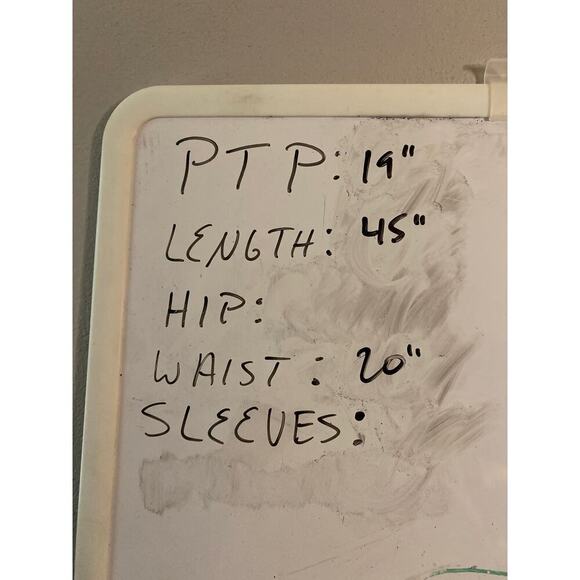 PTP: 19"
LENGTH: 45"
HIP:
WAIST: 20"
SLEEVES: